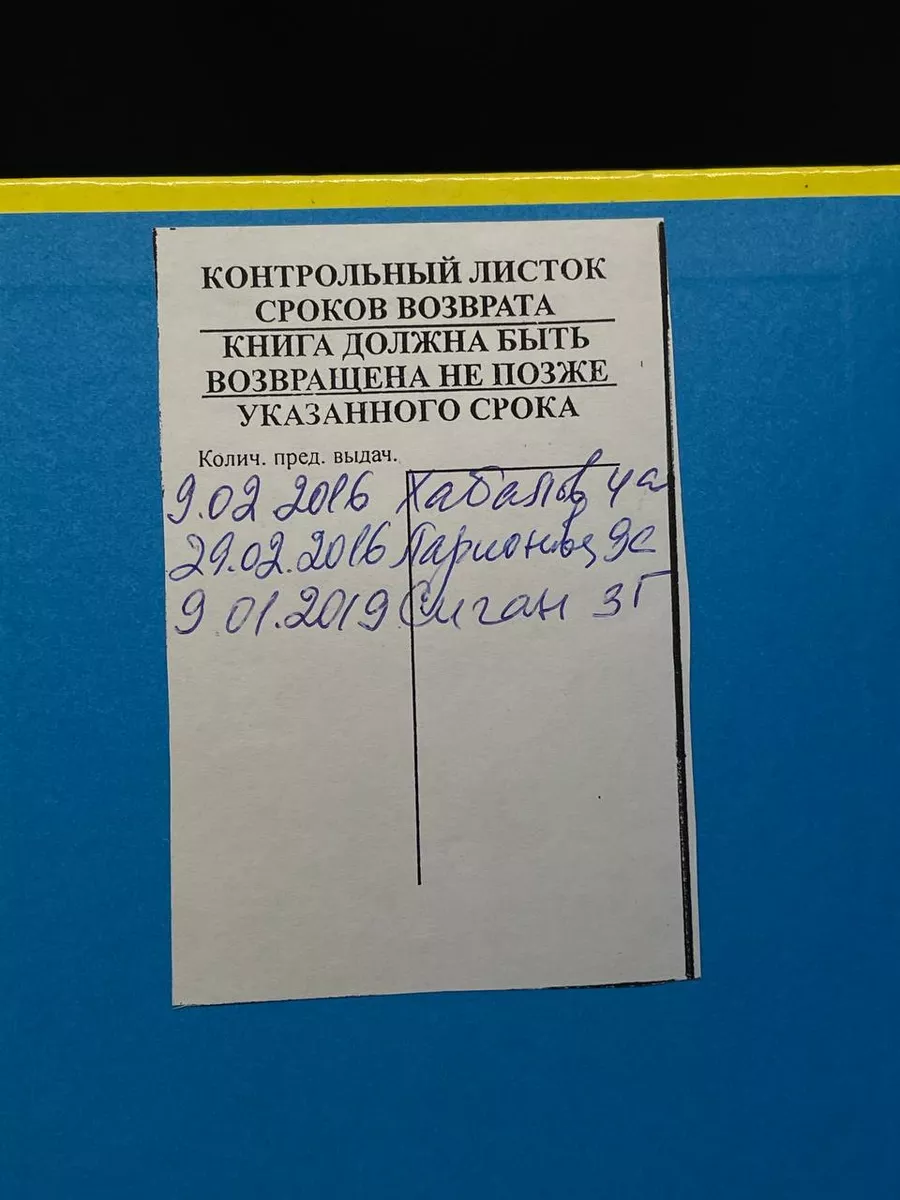 КОНТРОЛЬНЫЙ ЛИСТОК
СРОКОВ ВОЗВРАТА
КНИГА ДОЛЖНА БЫТЬ
ВОЗВРАЩЕНА НЕ ПОЗЖЕ
УКАЗАННОГО СРОКА
Колич. пред. выдач.
9.02 2016 4а
29.02.2016 9с
9 01.2019 Сиган 3Г